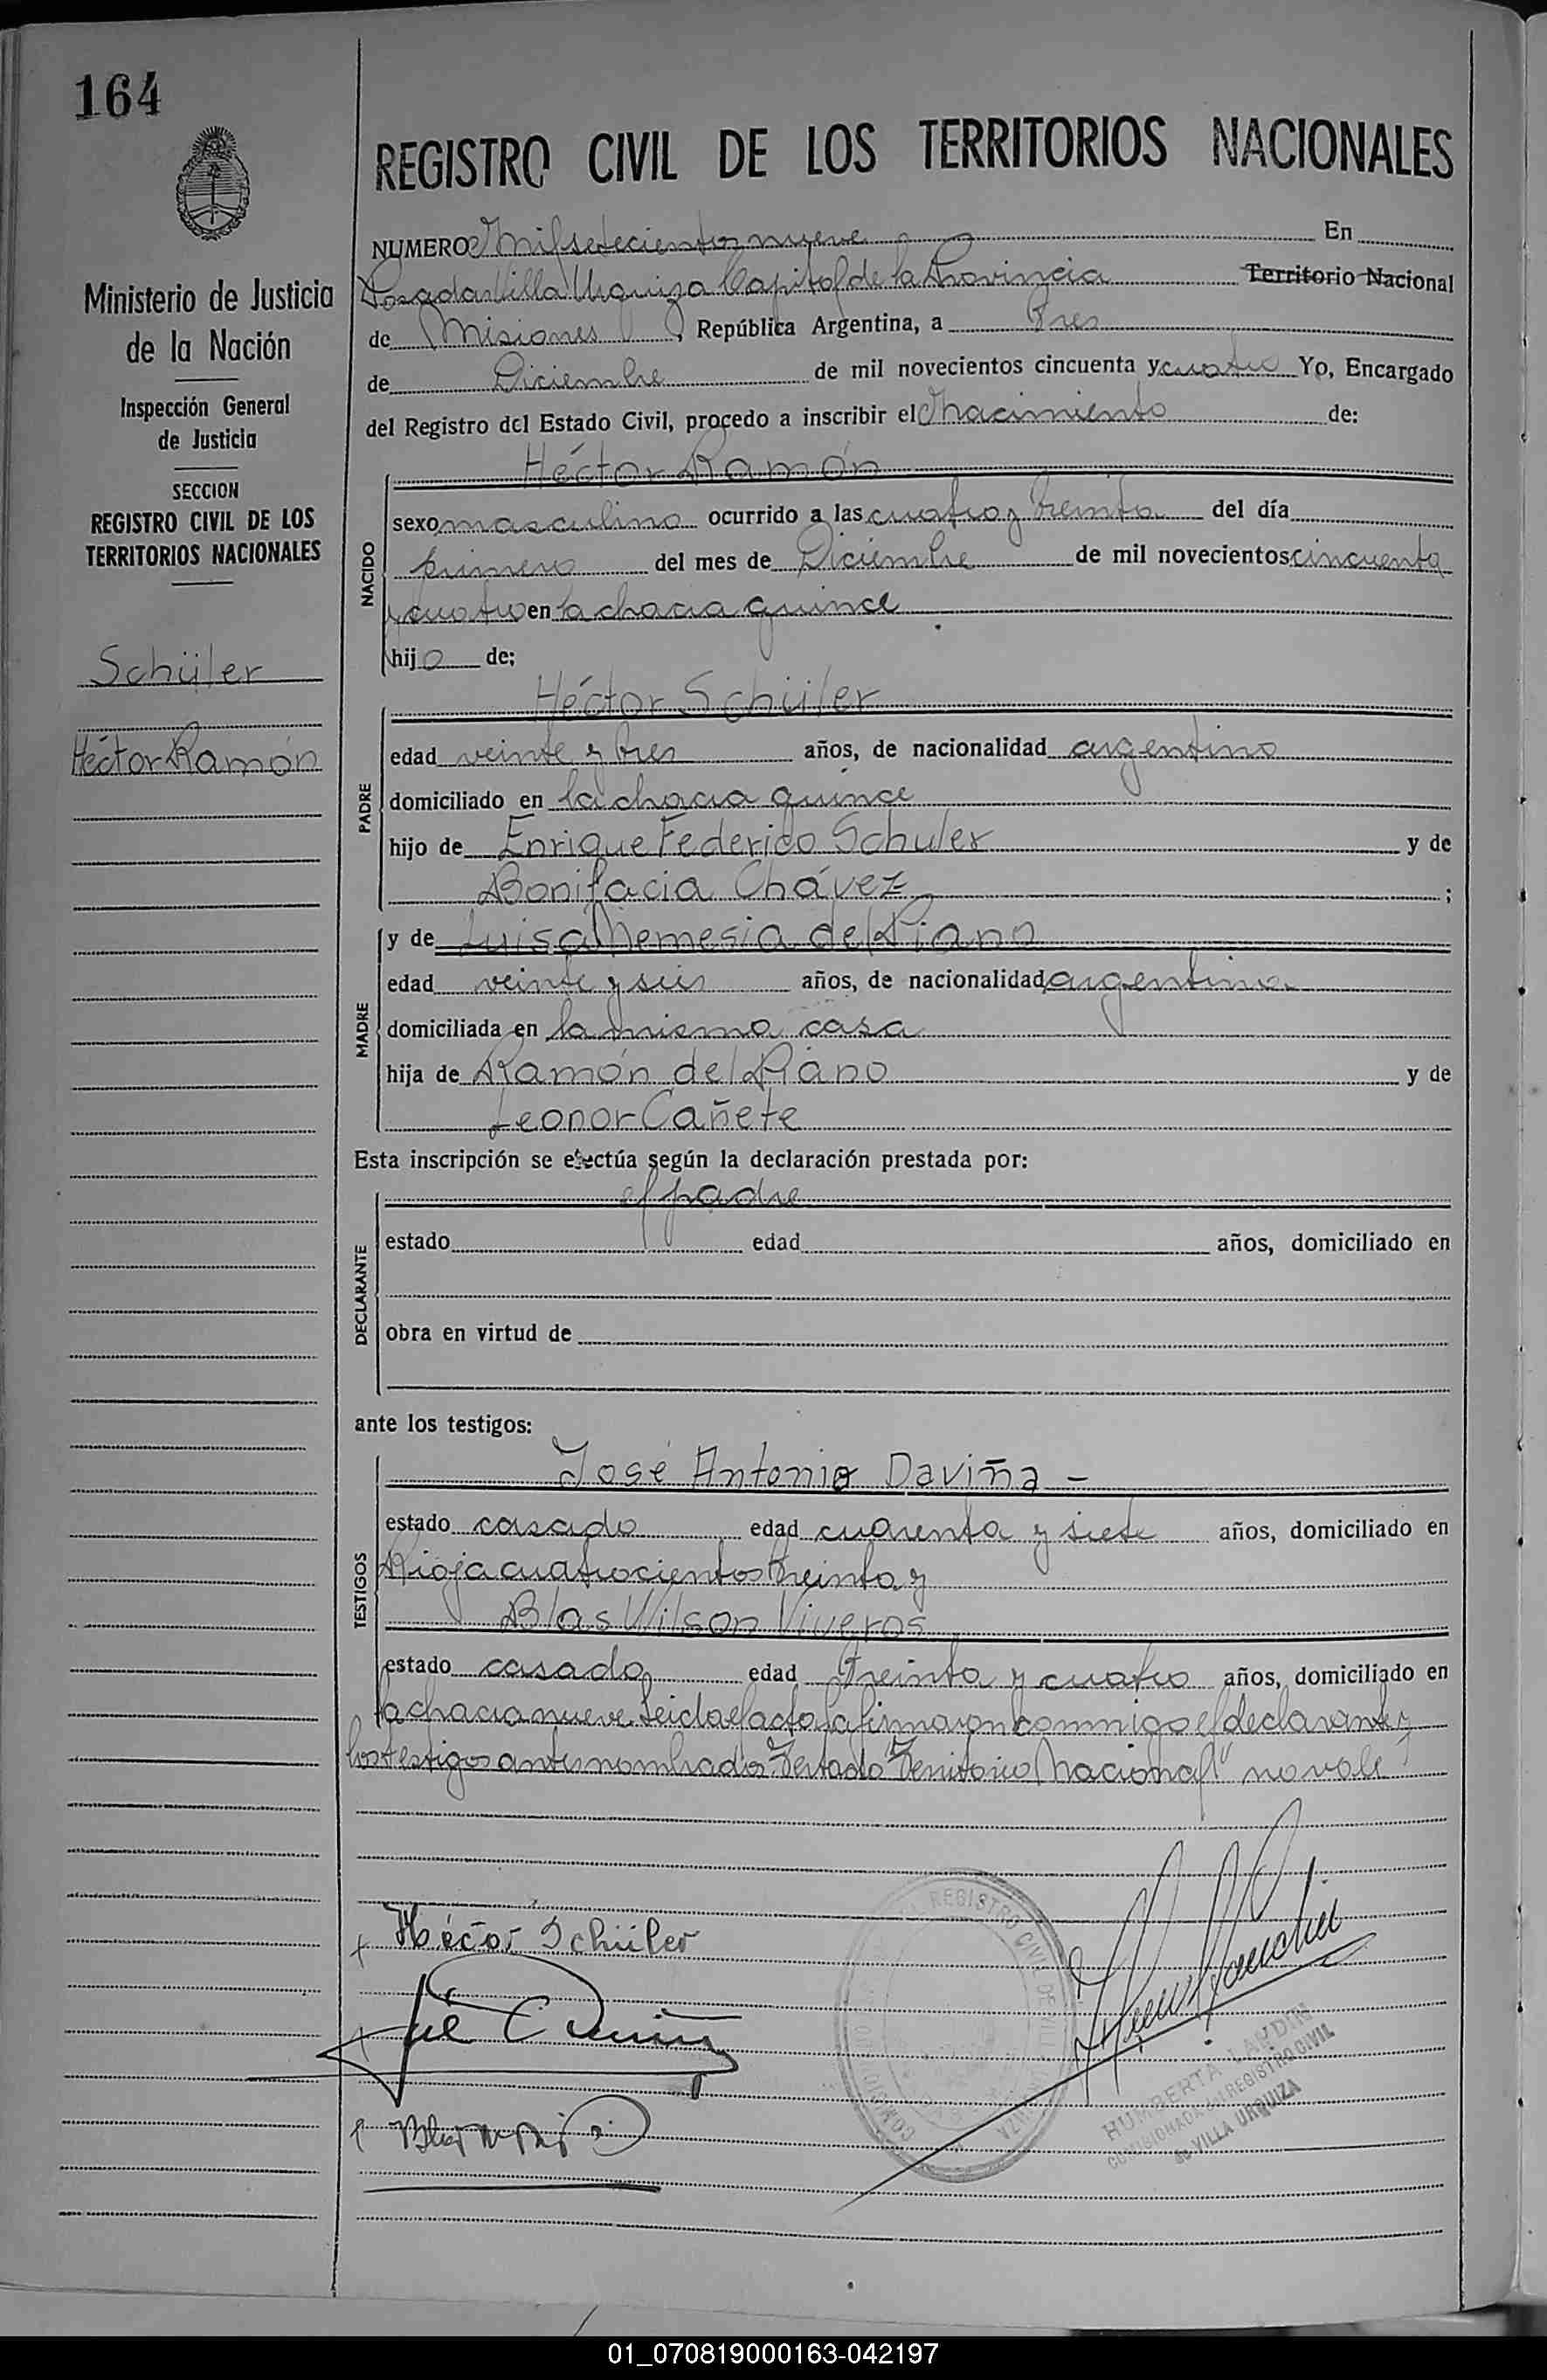 164
REGISTRO CIVIL DE LOS TERRITORIOS NACIONALES
NUMERO mil setecientos nueve En
Posadas Villa Urquiza Capital de la Provincia Territorio Nacional
de Misiones, República Argentina, a Tres
de Diciembre de mil novecientos cincuenta y cuatro Yo, Encargado
del Registro del Estado Civil, procedo a inscribir el nacimiento de:
Ministerio de Justicia
de la Nación
Inspección General
de Justicia
SECCION
REGISTRO CIVIL DE LOS
TERRITORIOS NACIONALES
Schüler
Héctor Ramón
NACIDO
Héctor Ramón
sexo masculino ocurrido a las cuatro y treinta del día
primero del mes de Diciembre de mil novecientos cincuenta
y cuatro en la chacra quince
hijo de;
PADRE
Héctor Schüler
edad veinte y tres años, de nacionalidad argentino
domiciliado en la chacra quince
hijo de Enrique Federico Schuler y de
Bonifacia Chávez ;
MADRE
y de Luisa Nemesia del Piano
edad veinte y seis años, de nacionalidad argentina
domiciliada en la misma casa
hija de Ramón del Piano y de
Leonor Cañete
Esta inscripción se efectúa según la declaración prestada por:
DECLARANTE
el padre
estado edad años, domiciliado en
obra en virtud de
ante los testigos:
TESTIGOS
José Antonio Daviña -
estado casado edad cuarenta y siete años, domiciliado en
Rioja cuatrocientos treinta y
Blas Wilson Viveros
estado casado edad Treinta y cuatro años, domiciliado en
la chacra nueve. Leida el acta la firmaron conmigo el declarante y
los testigos antes nombrados. Testado "Territorio Nacional" no vale
Héctor Schüler
REGISTRO CIVIL DE VILLA URQUIZA
HUMBERTA LANDIN
COMISIONADA del REGISTRO CIVIL
de VILLA URQUIZA
01_070819000163-042197